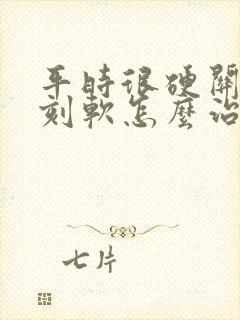 平時很硬關
刻軟怎麼治
七片